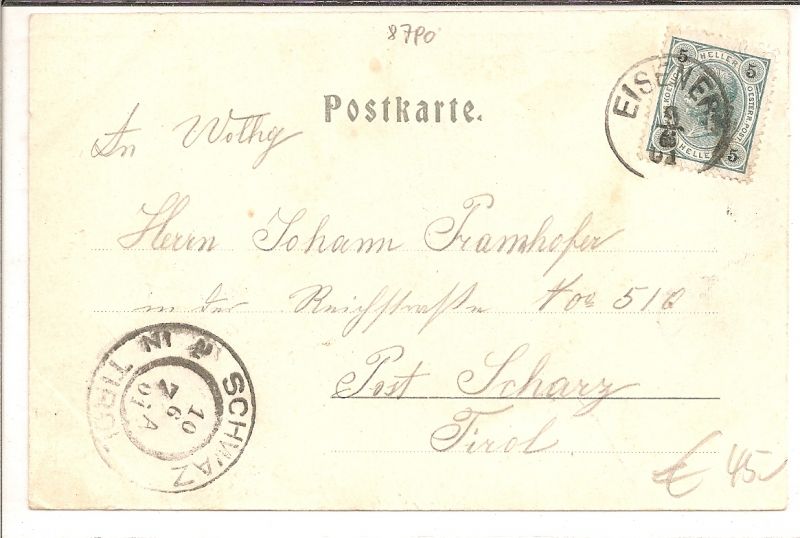 8790
Postkarte.
5 HELLER 5
OESTERR. POST
HELLER 5
EISENERZ
01
An Wolhg
Herrn Johann Framhofer
in der Reichstraße No 510
Post Scharz
Tirol
SCHWAZ IN TIROL
10
7 6 A
01
€ 45